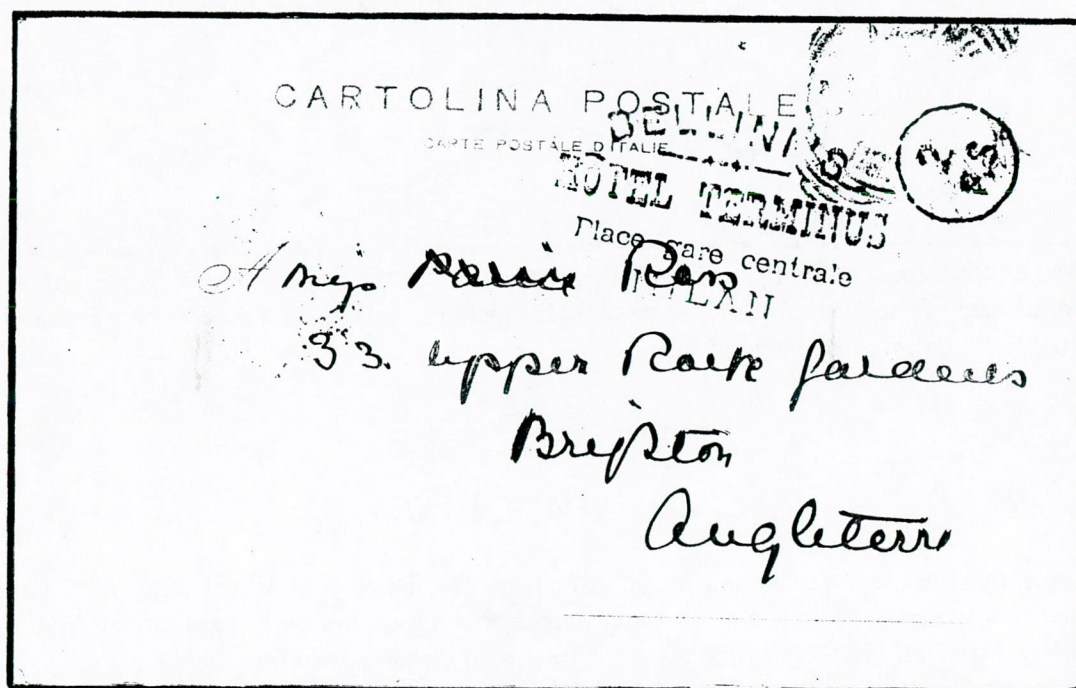 CARTOLINA POSTALE
CARTE POSTALE D'ITALIE
HOTEL TERMINUS
Place gare centrale
MILAN
A Miss Ross
33. Upper Rock Gardens
Brighton
Angleterre